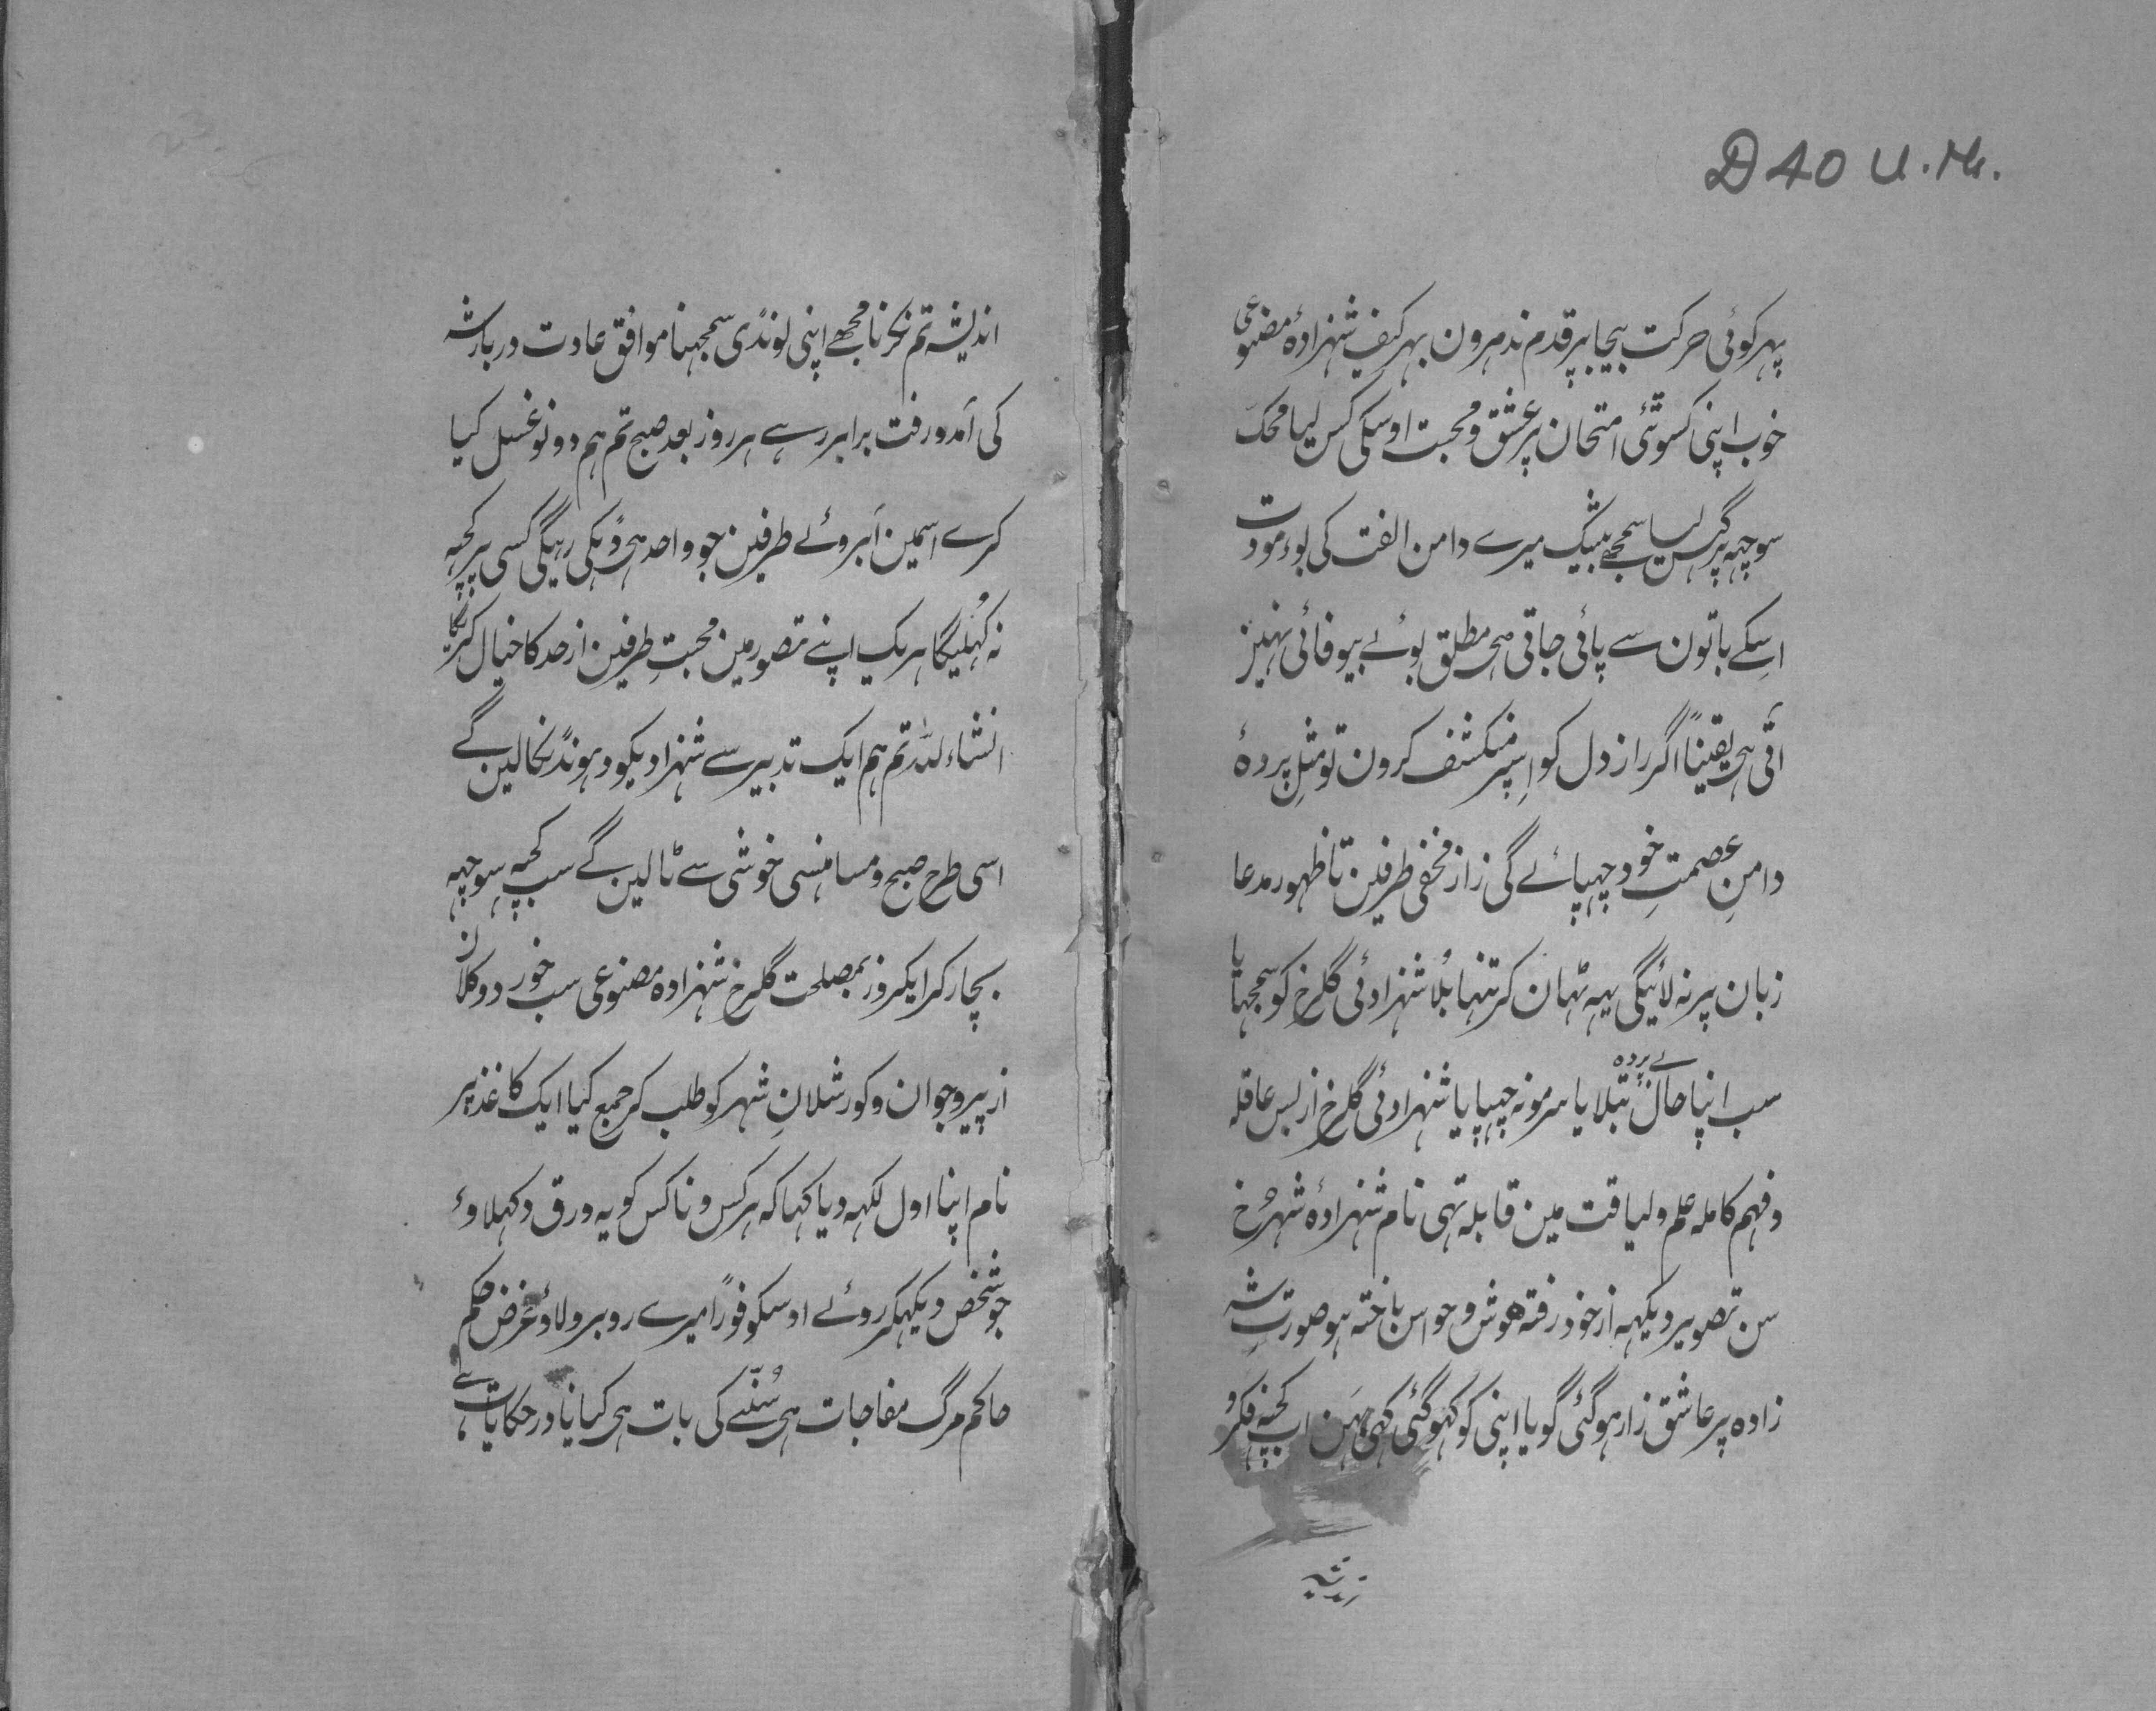 D 40 U.M.
پہر کوئی حرکت بیجا پر قدم ندہرون بہر کیف شہزادۂ مصنوعی
خوب اپنی کسوٹئی امتحان پر عشق و محبت اوسکی کس لیا محک
سوچہہ پر گہس لیا سمجھے بیشک میرے دامن الفت کی بوء مودت
اسکے باتون سے پائی جاتی ہی مطلق بوئے بیوفائی نہین
آتی ہی یقیناً اگر راز دل کو اِسپر منکشف کرون تو مثلِ پردۂ
دامنِ عصمتِ خود چہپائے گی راز مخفی طرفین تا ظہور مدعا
زبان پر نہ لائیگی یہہ ٹہان کر تنہا بُلا شہزادئی گلرخ کو سمجہایا
سب اپنا حال بے پردہ بتلایا سرمو نہ چہپایا شہزادئی گلرخ از بس عاقلہ
و فہم کاملہ علم و لیاقت مین قابلہ تہی نام شہزادۂ شہرُخ
سن تصویر دیکہہ از خود رفتہ ہوش و حواس باختہ ہو صورتِ شہ
زادہ پر عاشق زار ہو گئی گویا اپنی کو کہو گئی کہی بہن اب کچہہ فکر و
اندیشہ
اندیشہ تم نکرنا مجھے اپنی لونڈی سمجہنا موافق عادت دربار شہ
کی آمد و رفت برابر رہے ہر روز بعد صبح تم ہم دونو غسل کیا
کرے اسمین آبروئے طرفین جو واحد ہی ڈہکی رہیگی کسی پر کچہہ
نہ کُہلیگا ہر یک اپنے تصور مین محبتِ طرفین از حد کا خیال کریگا
انشاء اللہ تم ہم ایک تدبیر سے شہزادیکو دہونڈ نخالین گے
اسی طرح صبح و مسا ہنسی خوشی سے ٹالین گے سب کچہہ سوچہہ
بچار کر ایکروز بمصلحت گلرخ شہزادہ مصنوعی سب خورد و کلان
از پیر و جوان و کور شلانِ شہر کو طلب کر جمع کیا ایک کاغذ پر
نام اپنا اول لکہہ دیا کہا کہ ہر کس و ناکس کو یہ ورق دکہلاوٴ
جو شخص دیکہکر روئے اوسکو فوراً میرے روبرو لاؤ غرض حکم
حاکم مرگ مفاجات ہی سُننّے کی بات ہی کیا نادر حکایات ہے